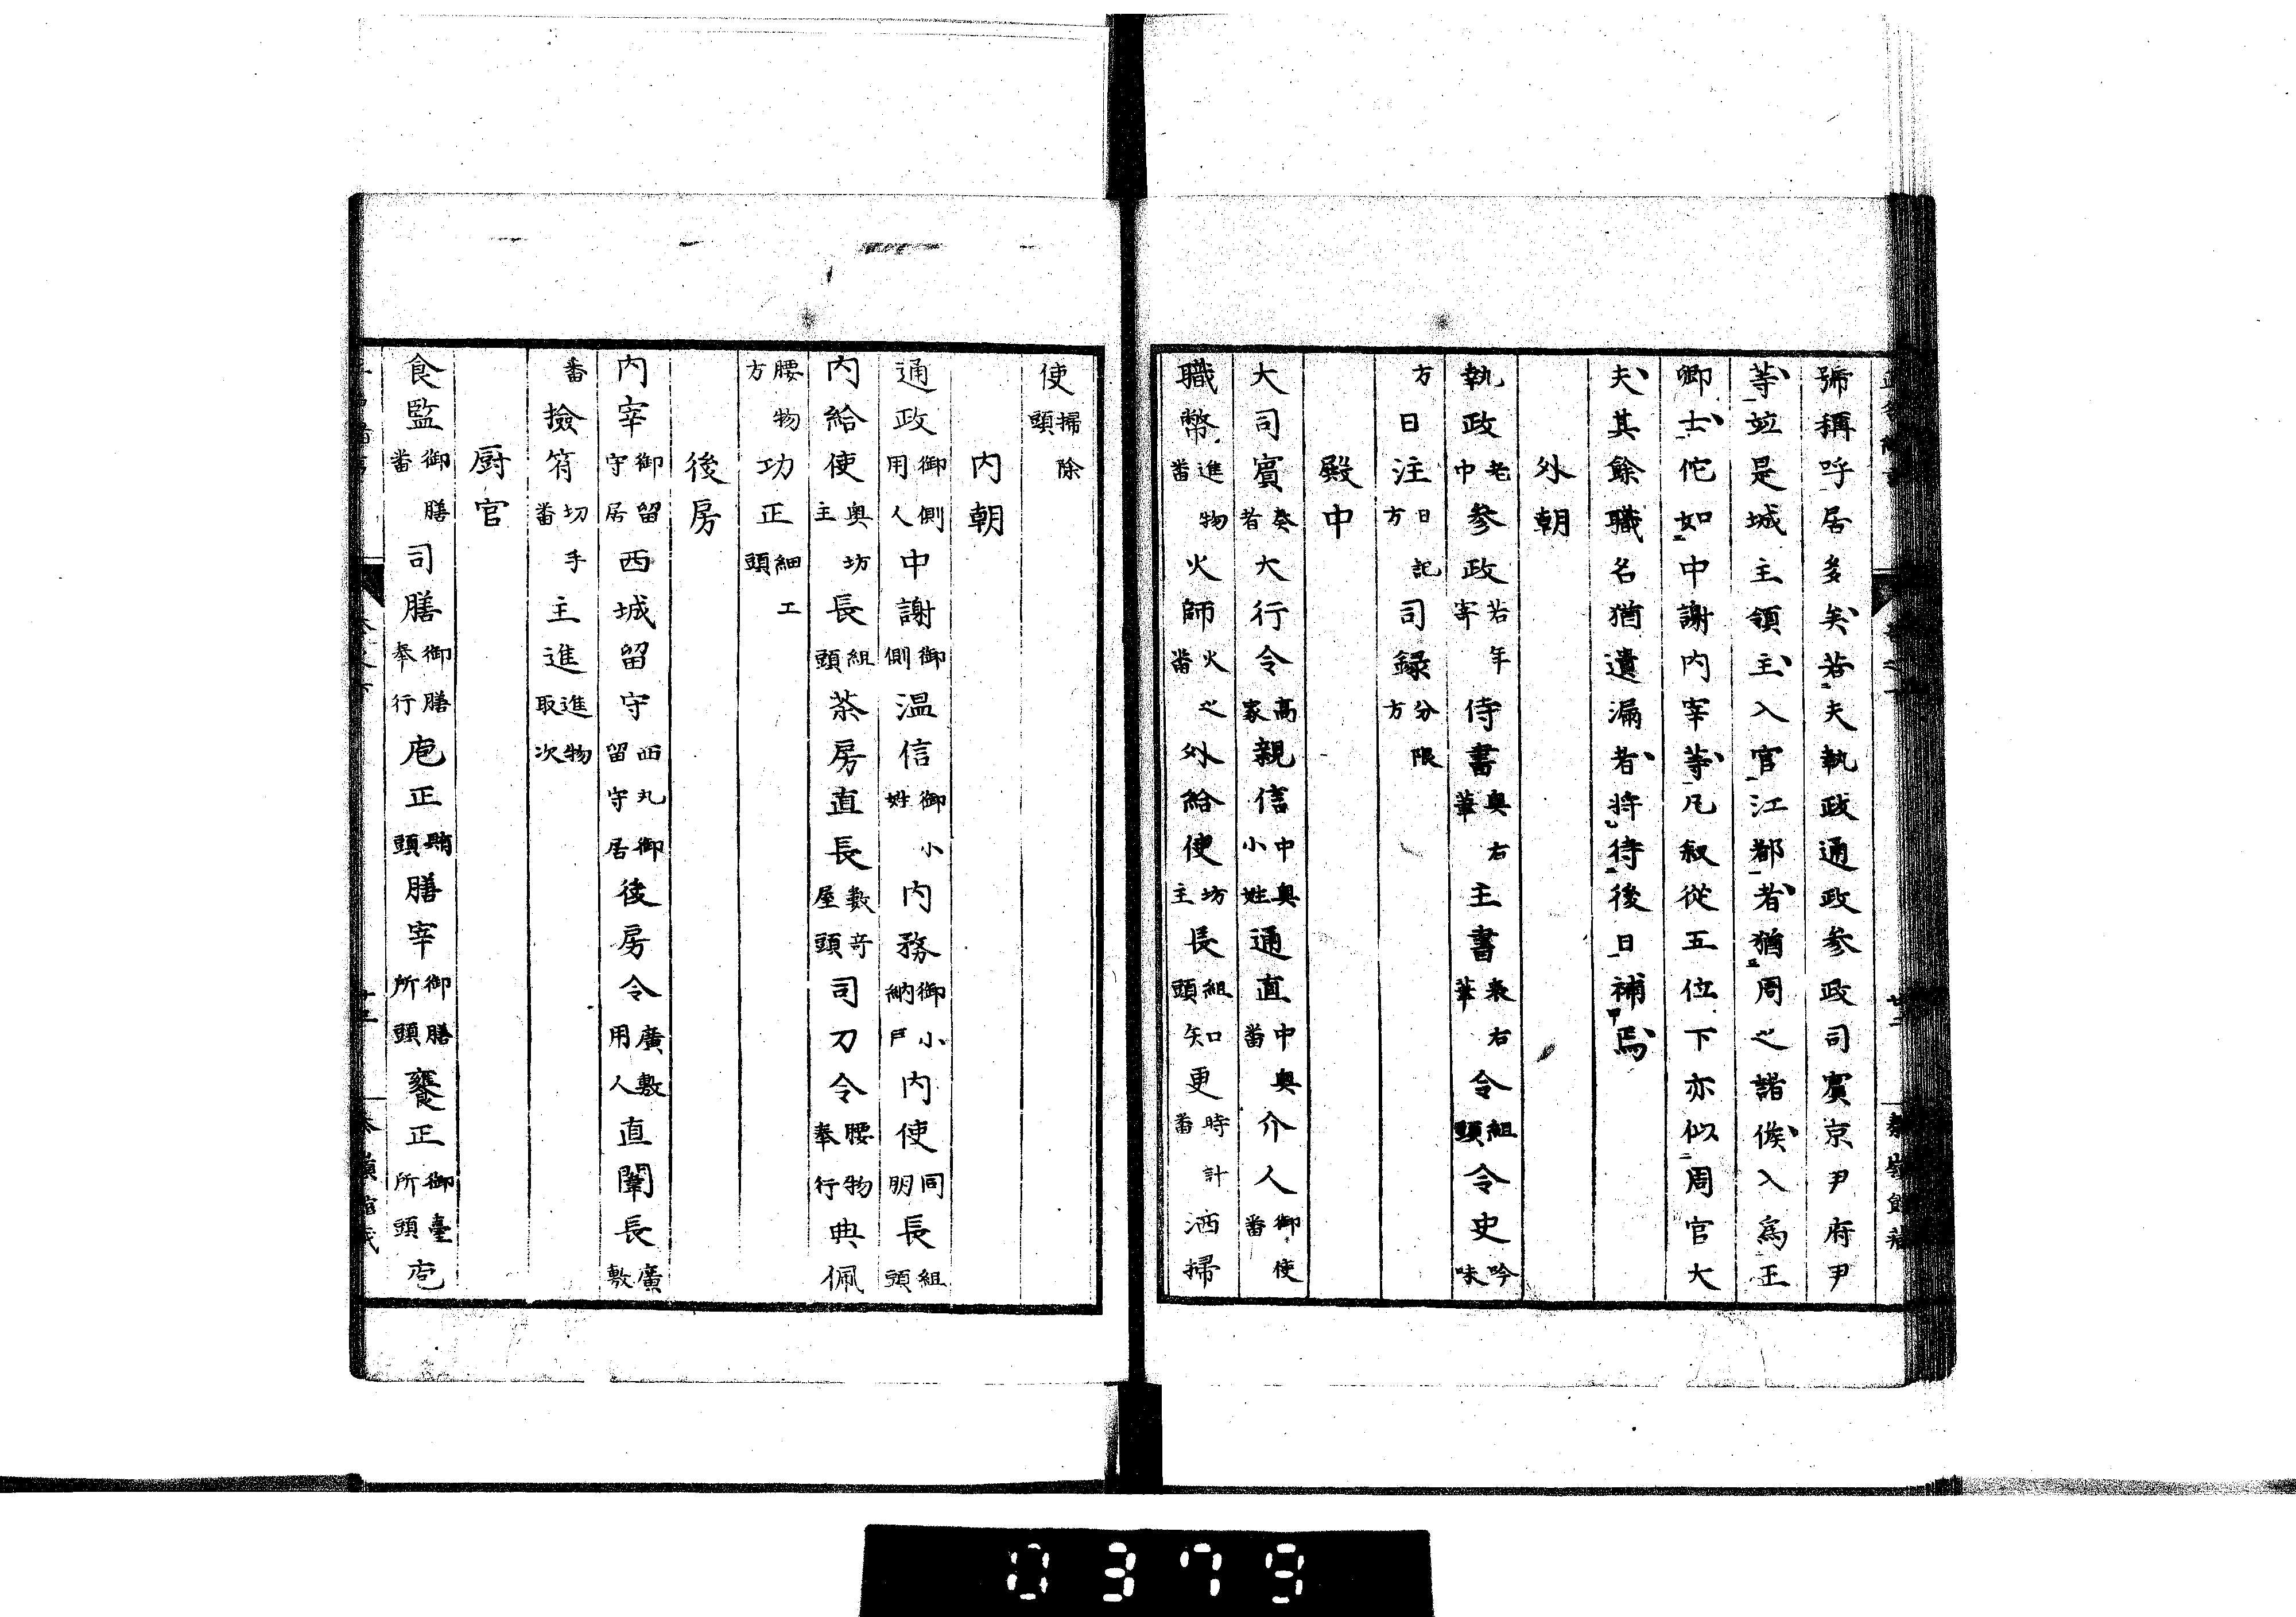 號稱呼居多矣若夫執政通政參政司賓京尹府尹
等竝是城主領主入官江都者猶周之諸侯入爲王
卿士佗如中謝內宰等凡叙從五位下亦似周官大
夫其餘職名猶遺漏者將待後日補焉
外朝
執政老中參政若年寄侍書奥右筆主書表右筆令組頭令史吟味
方日注日記方司録分限方
殿中
大司賓奏者大行令高家親信中奥小姓通直中奥番介人御使番
職幣進物番火師火之番外給使坊主長組頭知更時計番洒掃
使掃除頭
內朝
通政御側用人中謝御側温信御小姓內務御小納戸內使同朋長組頭
內給使奥坊主長組頭茶房直長數寄屋頭司刀令腰物奉行典佩
腰物方功正細工頭
後房
內宰御留守居西城留守西丸御留守居後房令廣敷用人直闈長廣敷
番撿符切手番主進進物取次
厨官
食監御膳番司膳御膳奉行庖正賄頭膳宰御膳所頭饔正御臺所頭庖
0379